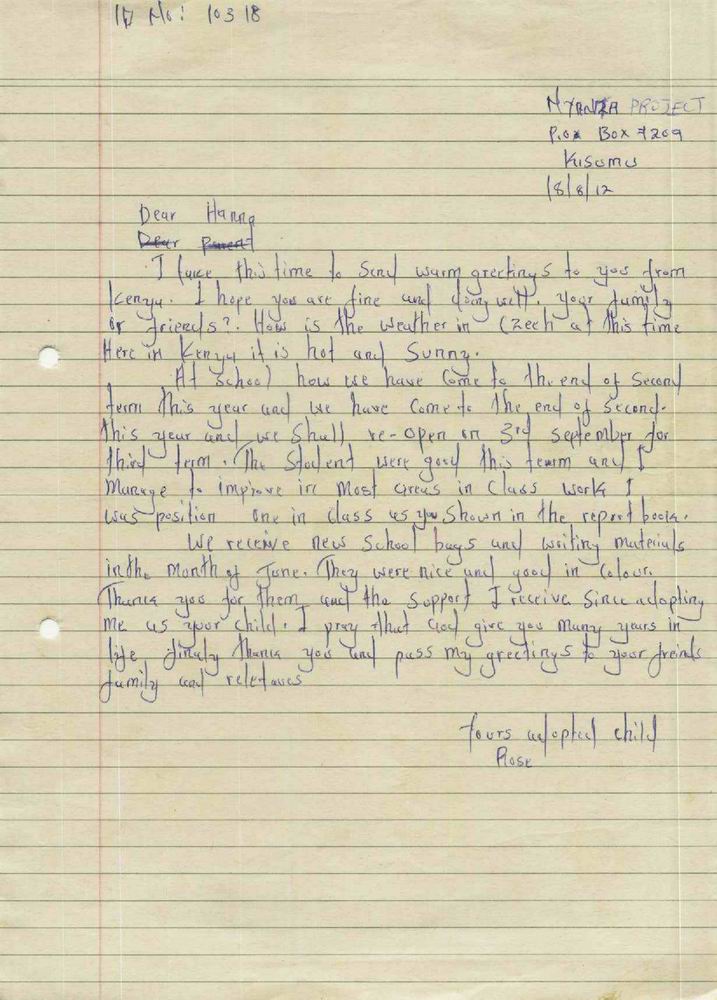 ID No: 10318
NYANZA PROJECT
P.O.X Box 7209
Kisumu
18/8/12
Dear Hanna
Dear Parent
I take this time to send warm greetings to you from
Kenya. I hope you are fine and doing well. your family
or friends?. How is the weather in Czech at this time
Here in Kenya it is hot and sunny.
At school how we have come to the end of second
term this year and we have come to the end of second.
this year and we shall re-open on 3rd september for
third term. The student were good this team and I
manage to improve in most areas in class work I
was position one in class as you shown in the report book.
We receive new school bags and writing materials
in the month of June. They were nice and good in colour.
Thank you for them and the support I receive since adopting
me as your child. I pray that God give you many years in
life finaly thank you and pass my greetings to your freinds
family and reletaves
Yours adopted child
Rose